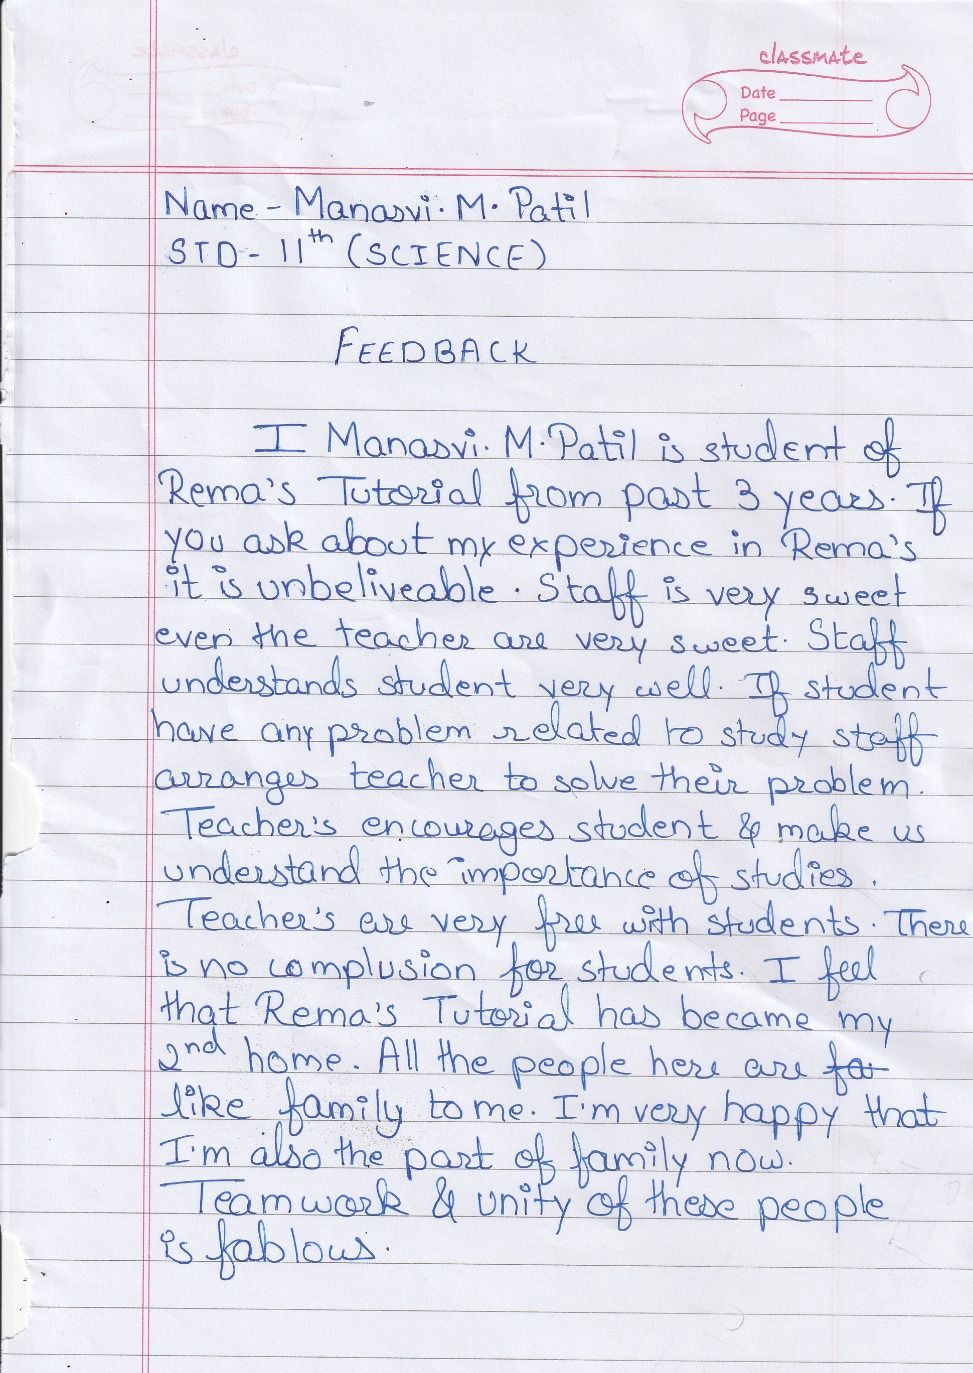 classmate
Date
Page
Name - Manasvi. M. Patil
STD - 11th (SCIENCE)
FEEDBACK
I Manasvi. M. Patil is student of
Rema's Tutorial from past 3 years. If
you ask about my experience in Rema's
it is unbeliveable. Staff is very sweet
even the teacher are very sweet. Staff
understands student very well. If student
have any problem related to study staff
arranges teacher to solve their problem.
Teacher's encourages student & make us
understand the importance of studies.
Teacher's are very free with students. There
is no complusion for students. I feel
that Rema's Tutorial has became my
2nd home. All the people here are fa
like family to me. I'm very happy that
I'm also the part of family now.
Teamwork & unity of these people
is fablous.